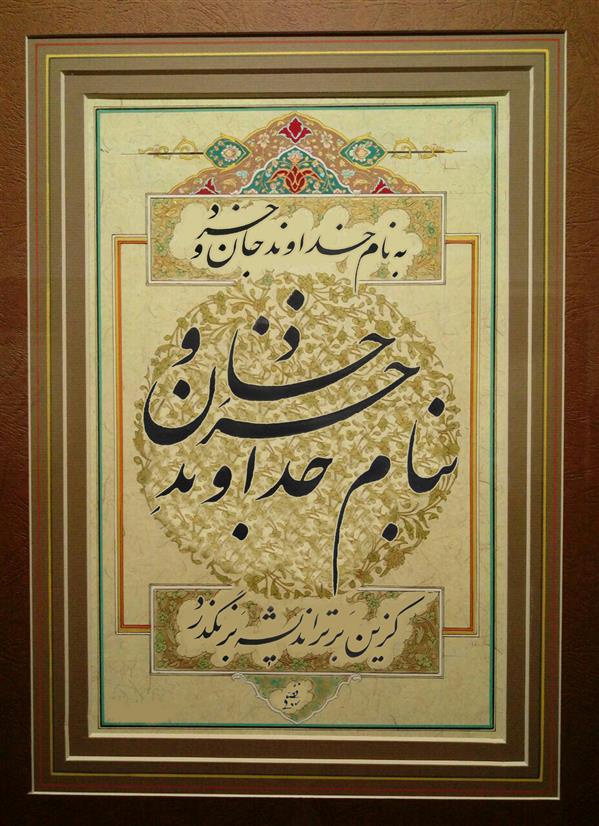 به نام خداوند جان و خرد
بنام خداوندِ جان و خرد
کزین برتر اندیشه برنگذرد